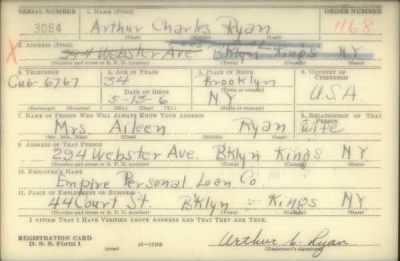 SERIAL NUMBER 1. NAME (Print) ORDER NUMBER
3084 Arthur Charles Ryan 1168
2. ADDRESS (Print)
X 294 Webster Ave Bklyn Kings N Y
(Number and street or R. F. D. number) (Town) (County) (State)
3. TELEPHONE 4. AGE IN YEARS 5. PLACE OF BIRTH 6. COUNTRY OF CITIZENSHIP
Cu6-6767 34 Brooklyn
DATE OF BIRTH
5-13-6 N Y U.S.A
(Exchange) (Number) (Mo.) (Day) (Yr.) (State or country)
7. NAME OF PERSON WHO WILL ALWAYS KNOW YOUR ADDRESS 8. RELATIONSHIP OF THAT PERSON
Mrs Aileen Ryan wife
(Mr., Mrs., Miss) (First) (Middle) (Last)
9. ADDRESS OF THAT PERSON
294 Webster Ave Bklyn Kings N Y
(Number and street or R. F. D. number) (Town) (County) (State)
10. EMPLOYER'S NAME
Empire Personal Loan Co.
11. PLACE OF EMPLOYMENT OR BUSINESS
44 Court St. Bklyn Kings N Y
(Number and street or R. F. D. number) (Town) (County) (State)
I AFFIRM THAT I HAVE VERIFIED ABOVE ANSWERS AND THAT THEY ARE TRUE.
REGISTRATION CARD
D. S. S. FORM 1 Arthur C. Ryan
(Registrant's signature)